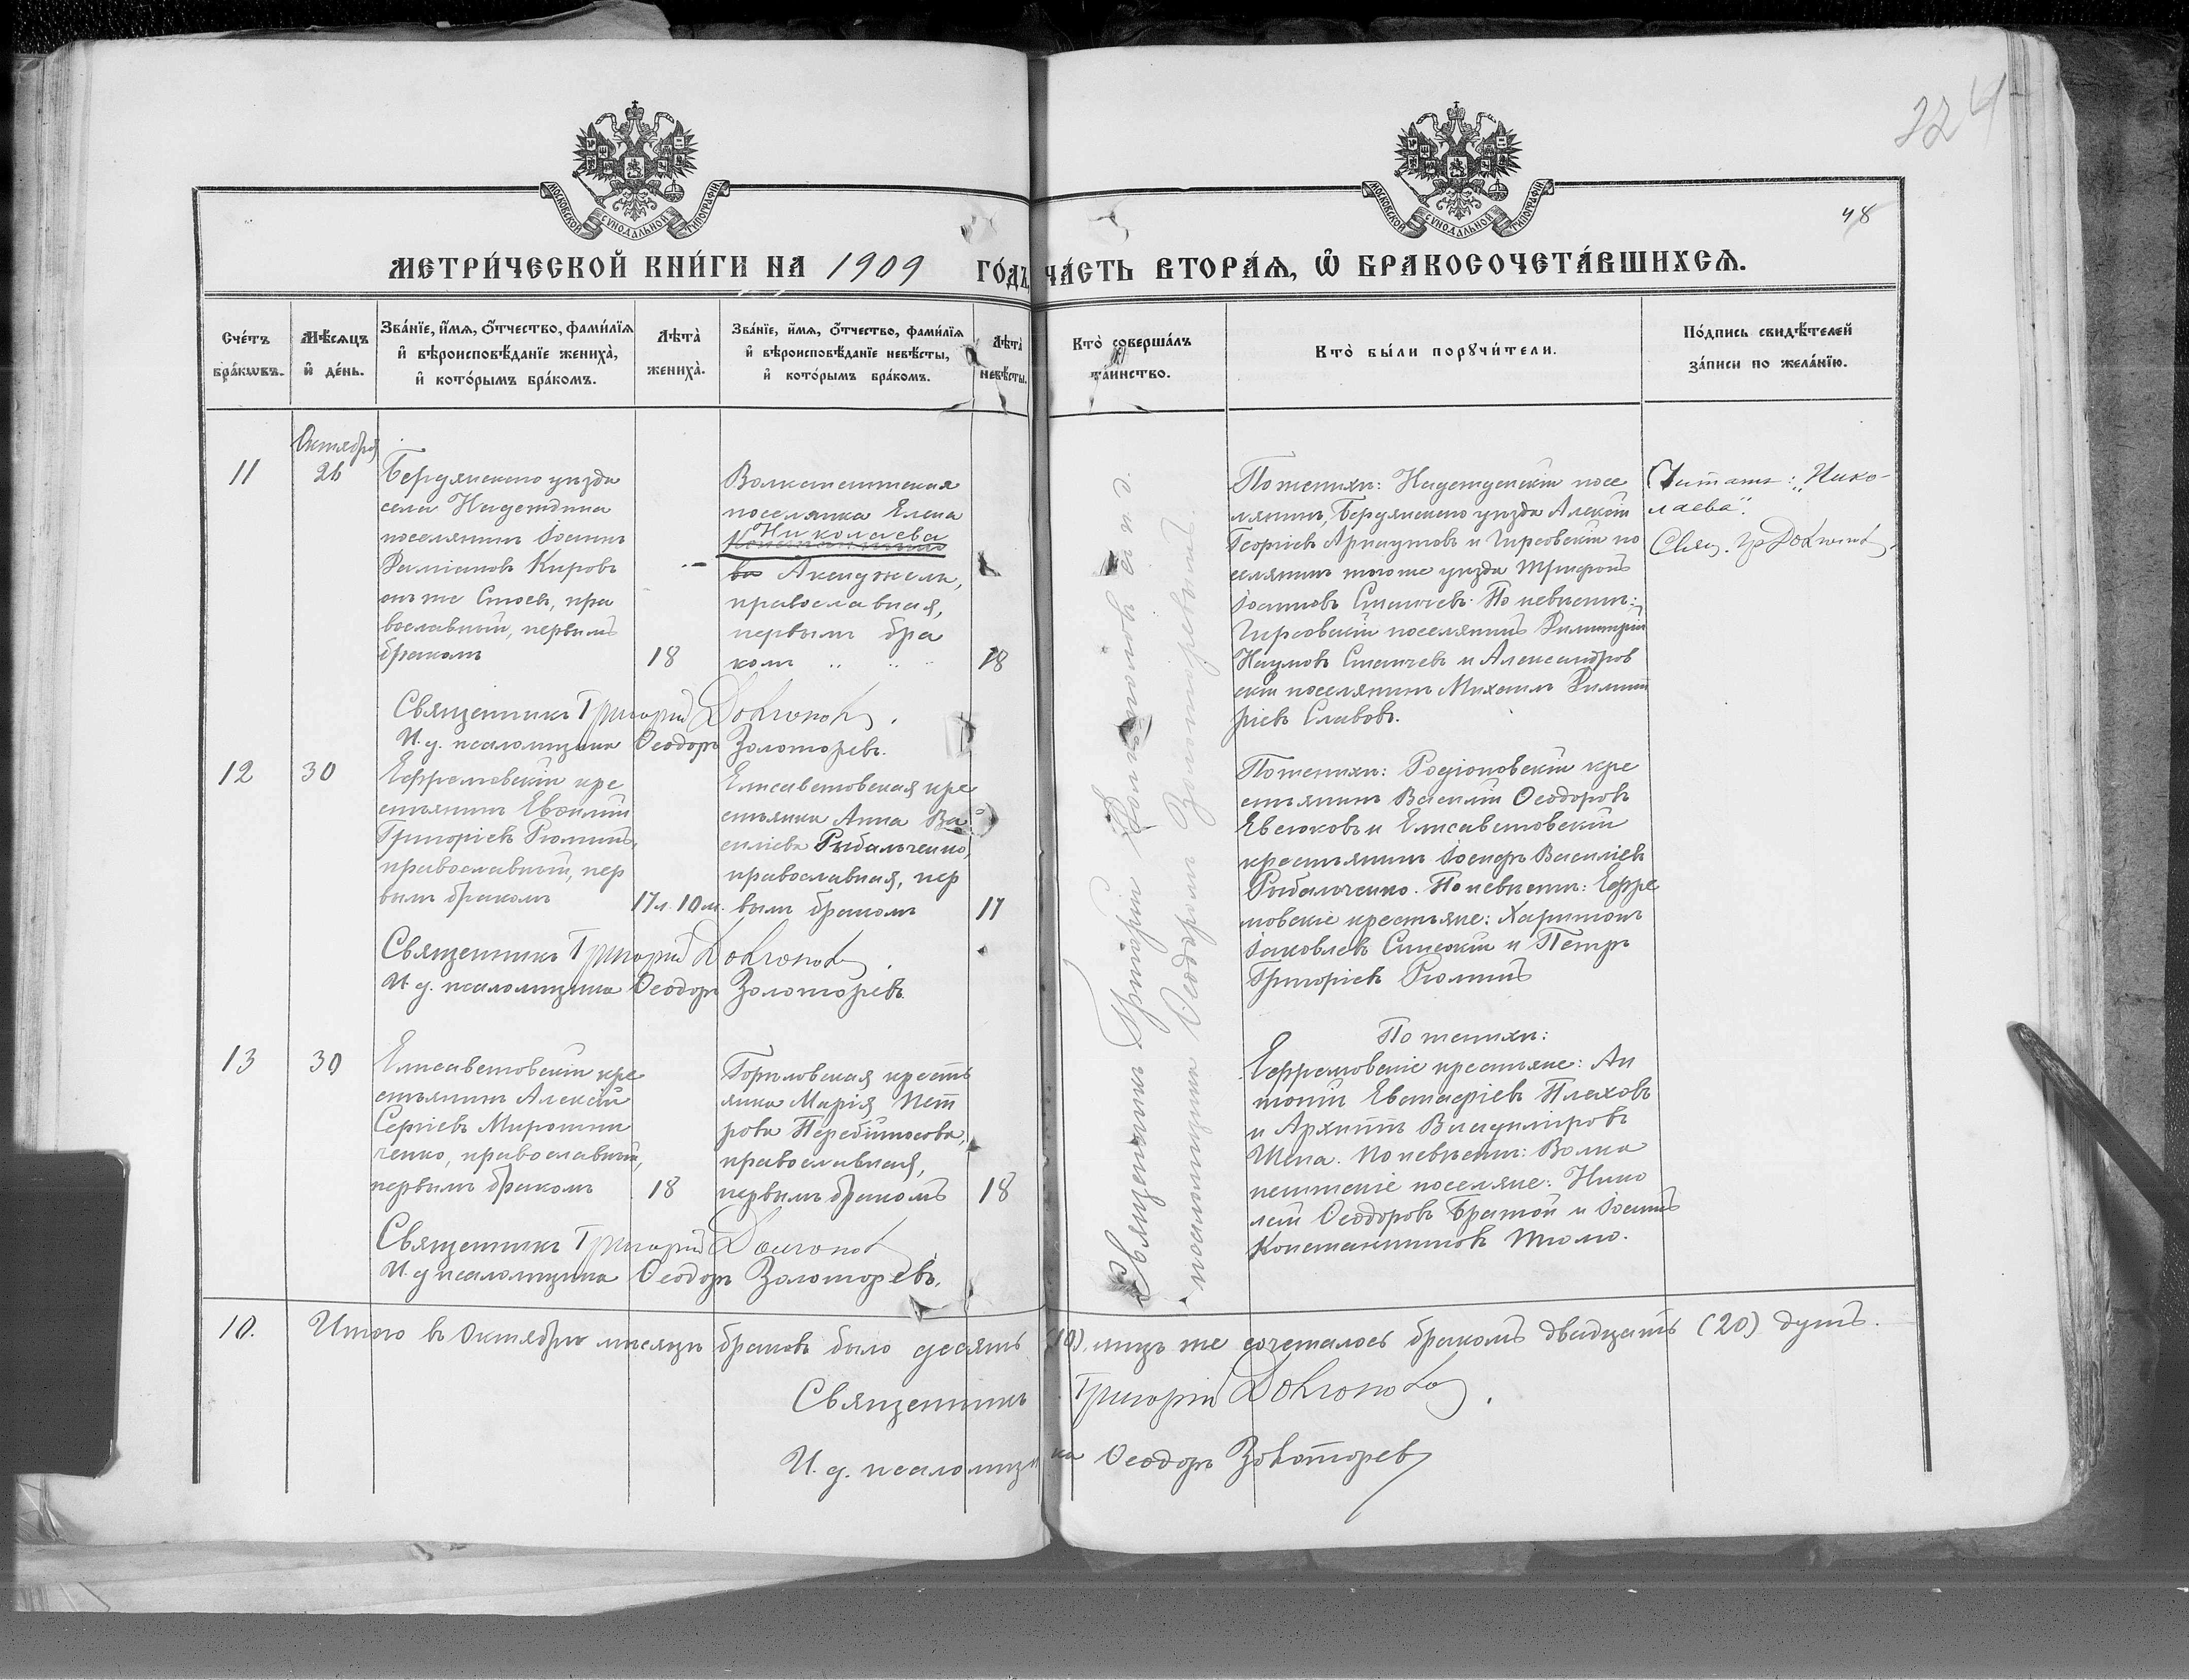 224
48
МОСКОВСКОЙ СѴНОДАЛЬНОЙ ТИПОГРАФІИ
МОСКОВСКОЙ СѴНОДАЛЬНОЙ ТИПОГРАФІИ
МЕТРИ́ЧЕСКОЙ КНИ́ГИ НА 1909 ГО́ДЪ ЧА́СТЬ ВТОРА́Ѧ, Ѽ БРАКОСОЧЕТА́ВШИХСѦ.
Сче́тъ
бра́кѡвъ.
Мѣ́сѧцъ
и҆ де́нь.
Зва́нїе, и҆́мѧ, ѻ҆́тчество, фами́лїѧ
и҆ вѣроисповѣ́данїе жениха̀,
и҆ кото́рымъ бра́комъ.
Лѣта̀
жениха̀.
Зва́нїе, и҆́мѧ, ѻ҆́тчество, фами́лїѧ
и҆ вѣроисповѣ́данїе невѣ́сты,
и҆ кото́рымъ бра́комъ.
Лѣта̀
невѣ́сты.
Кто̀ соверша́лъ
та́инство.
Кто̀ бы́ли порꙋчи́тели.
По́дпись свидѣ́телей
за́писи по жела́нїю.
11
Октября
26
Бердянскаго уѣзда
села Надеждина
поселянинъ Іоаннъ
Даміановъ Кировъ
онъ же Стоевъ, пра
вославный, первымъ
бракомъ
18
Волканештская
поселянка Елена
Николаева
Константино
ва Акенджели,
православная,
первымъ бра
комъ
18
По женихѣ: Надеждинскій посе
лянинъ, Бердянскаго уѣзда Алексій
Георгіевъ Арнаутовъ и Гирсовскій по
селянинъ тогоже уѣзда Трифонъ
Іоанновъ Станчевъ. По невѣстѣ:
Гирсовскій поселянинъ Димитрій
Наумовъ Станчевъ и Александров
скій поселянинъ Михаилъ Димит
ріевъ Славовъ.
Читать: „Нико-
лаева“.
Священникъ Григорій Долгополовъ.
И. д. псаломщика Ѳеодоръ Золоторевъ.
12
30
Ефремовскій кре
стьянинъ Евѳимій
Григоріевъ Рюминъ,
православный, пер
вымъ бракомъ
17 л. 10 м.
Елисаветовская кре
стьянка Анна Ва
силіева Рыбальченко,
православная, пер
вымъ бракомъ
17
По женихѣ: Родіоновскій кре
стьянинъ Василій Ѳеодоровъ
Евсюковъ и Елисаветовскій
крестьянинъ Іосифъ Василіевъ
Рыбальченко. По невѣстѣ: Ефре
мовскіе крестьяне: Харитонъ
Іаковлевъ Синскій и Петръ
Григоріевъ Рюминъ
Священникъ Григорій
И. д. псаломщика Ѳеодоръ Золоторевъ.
13
30
Елисаветовскій кре
стьянинъ Алексій
Сергіевъ Мирошни
ченко, православный,
первымъ бракомъ
18
Гориловская кресть
янка Марія Пет
рова Перебийносова,
православная,
первымъ бракомъ
18
По женихѣ:
Ефремовскіе крестьяне: Ан
тоній Евстафіевъ Плаховъ
и Архипъ Владиміровъ
Шепа. По невѣстѣ: Волка
нештскіе поселяне: Нико
лай Ѳеодоровъ Братой и Іоаннъ
Константиновъ Тюлю.
Священникъ Григорій
И. д. псаломщика Ѳеодоръ Золоторевъ.
Священникъ Григорій
псаломщика Ѳеодоръ Золоторевъ
10.
Итого въ Октябрѣ мѣсяцѣ браковъ было десять (10), лицъ же сочеталось бракомъ двадцать (20) душъ.
Священникъ Григорій
И. д. псаломщика Ѳеодоръ Золоторевъ